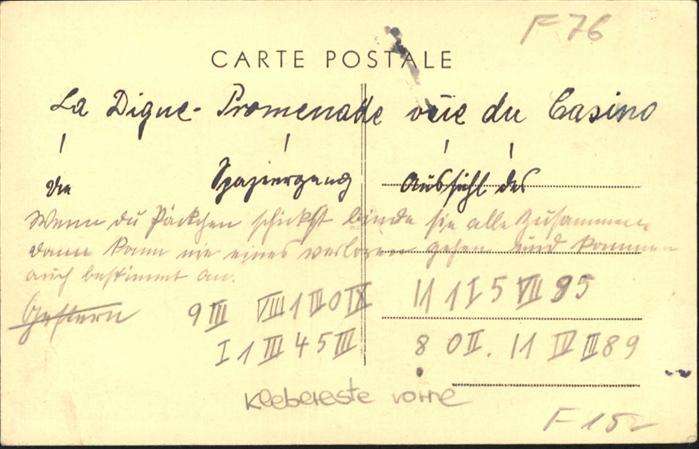 F 76
CARTE POSTALE
La Digue - Promenade vue du Casino
Die Spaziergang Aussicht des
Wenn du Päckchen schickst binde sie alle zusammen
dann kann nie eines verloren gehen und kommen
auch bestimmt an.
Gestern 9 III VIII 1 III 0 IX 11 1 I 5 VII 95
I 1 III 45 III 8 0 II. 11 IV III 89
Klebereste vorne
F 15,-